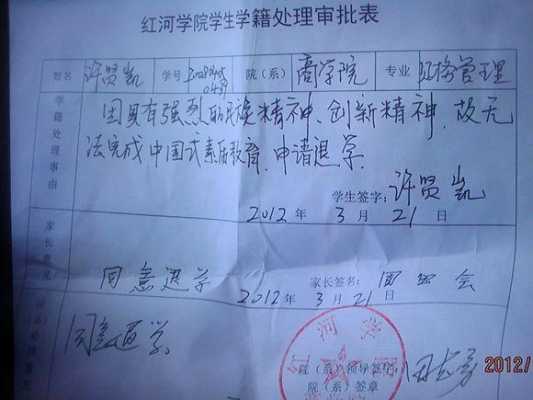 红河学院学生学籍处理审批表
姓名 许贤凯 学号 院（系） 商学院 专业 工程管理
学籍处理事由
因具有强烈的民族精神、创新精神，故无
法完成中国式素质教育，申请退学。
学生签字：许贤凯
2012 年 3 月 21 日
家长意见
同意退学 家长签名：
2012 年 3 月 21 日
同意退学
红河学
院（系）领导签字：
院（系）签章
2012/